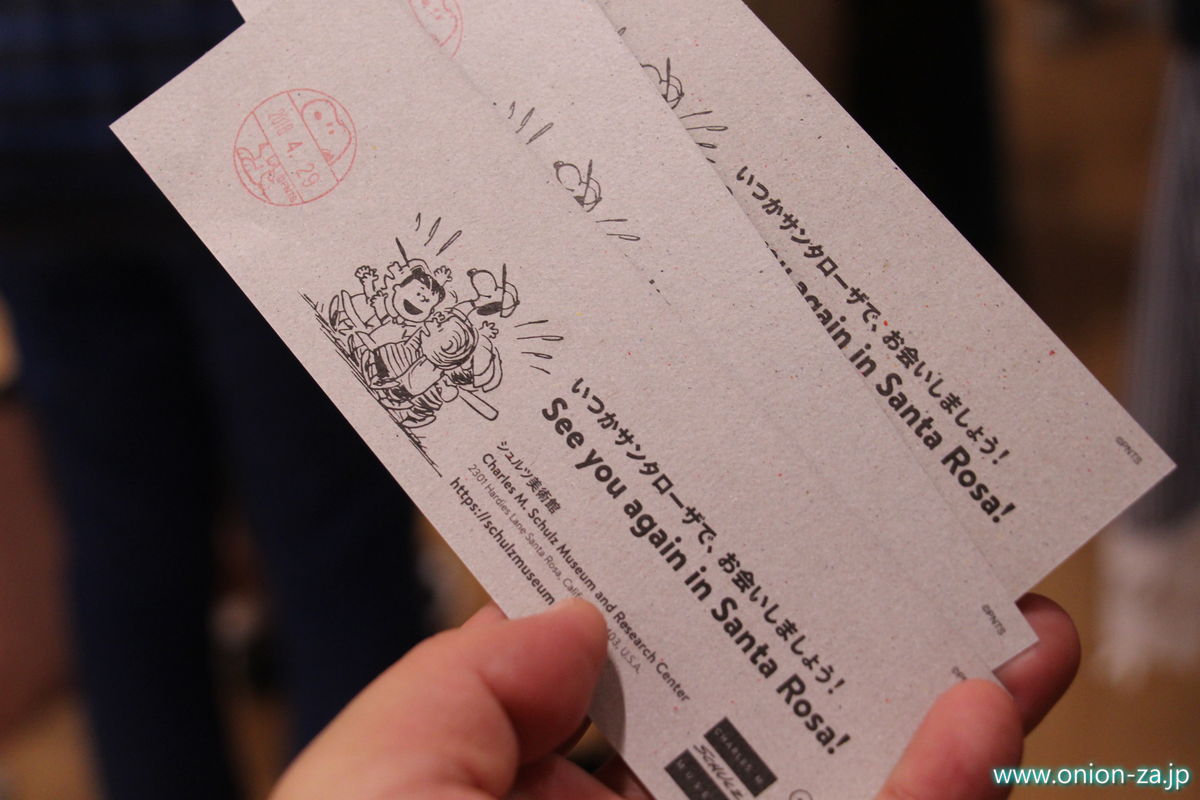 2018.4.29
©PNTS
いつかサンタローザで、お会いしましょう!
See you again in Santa Rosa!
シュルツ美術館
Charles M. Schulz Museum and Research Center
2301 Hardies Lane Santa Rosa,
U.S.A.
https://schulzmuseum
CHARLES M.
SCHULZ
いつかサンタローザで、お会いしましょう!
again in Santa Rosa!
©PNTS
©PNTS
www.onion-za.jp